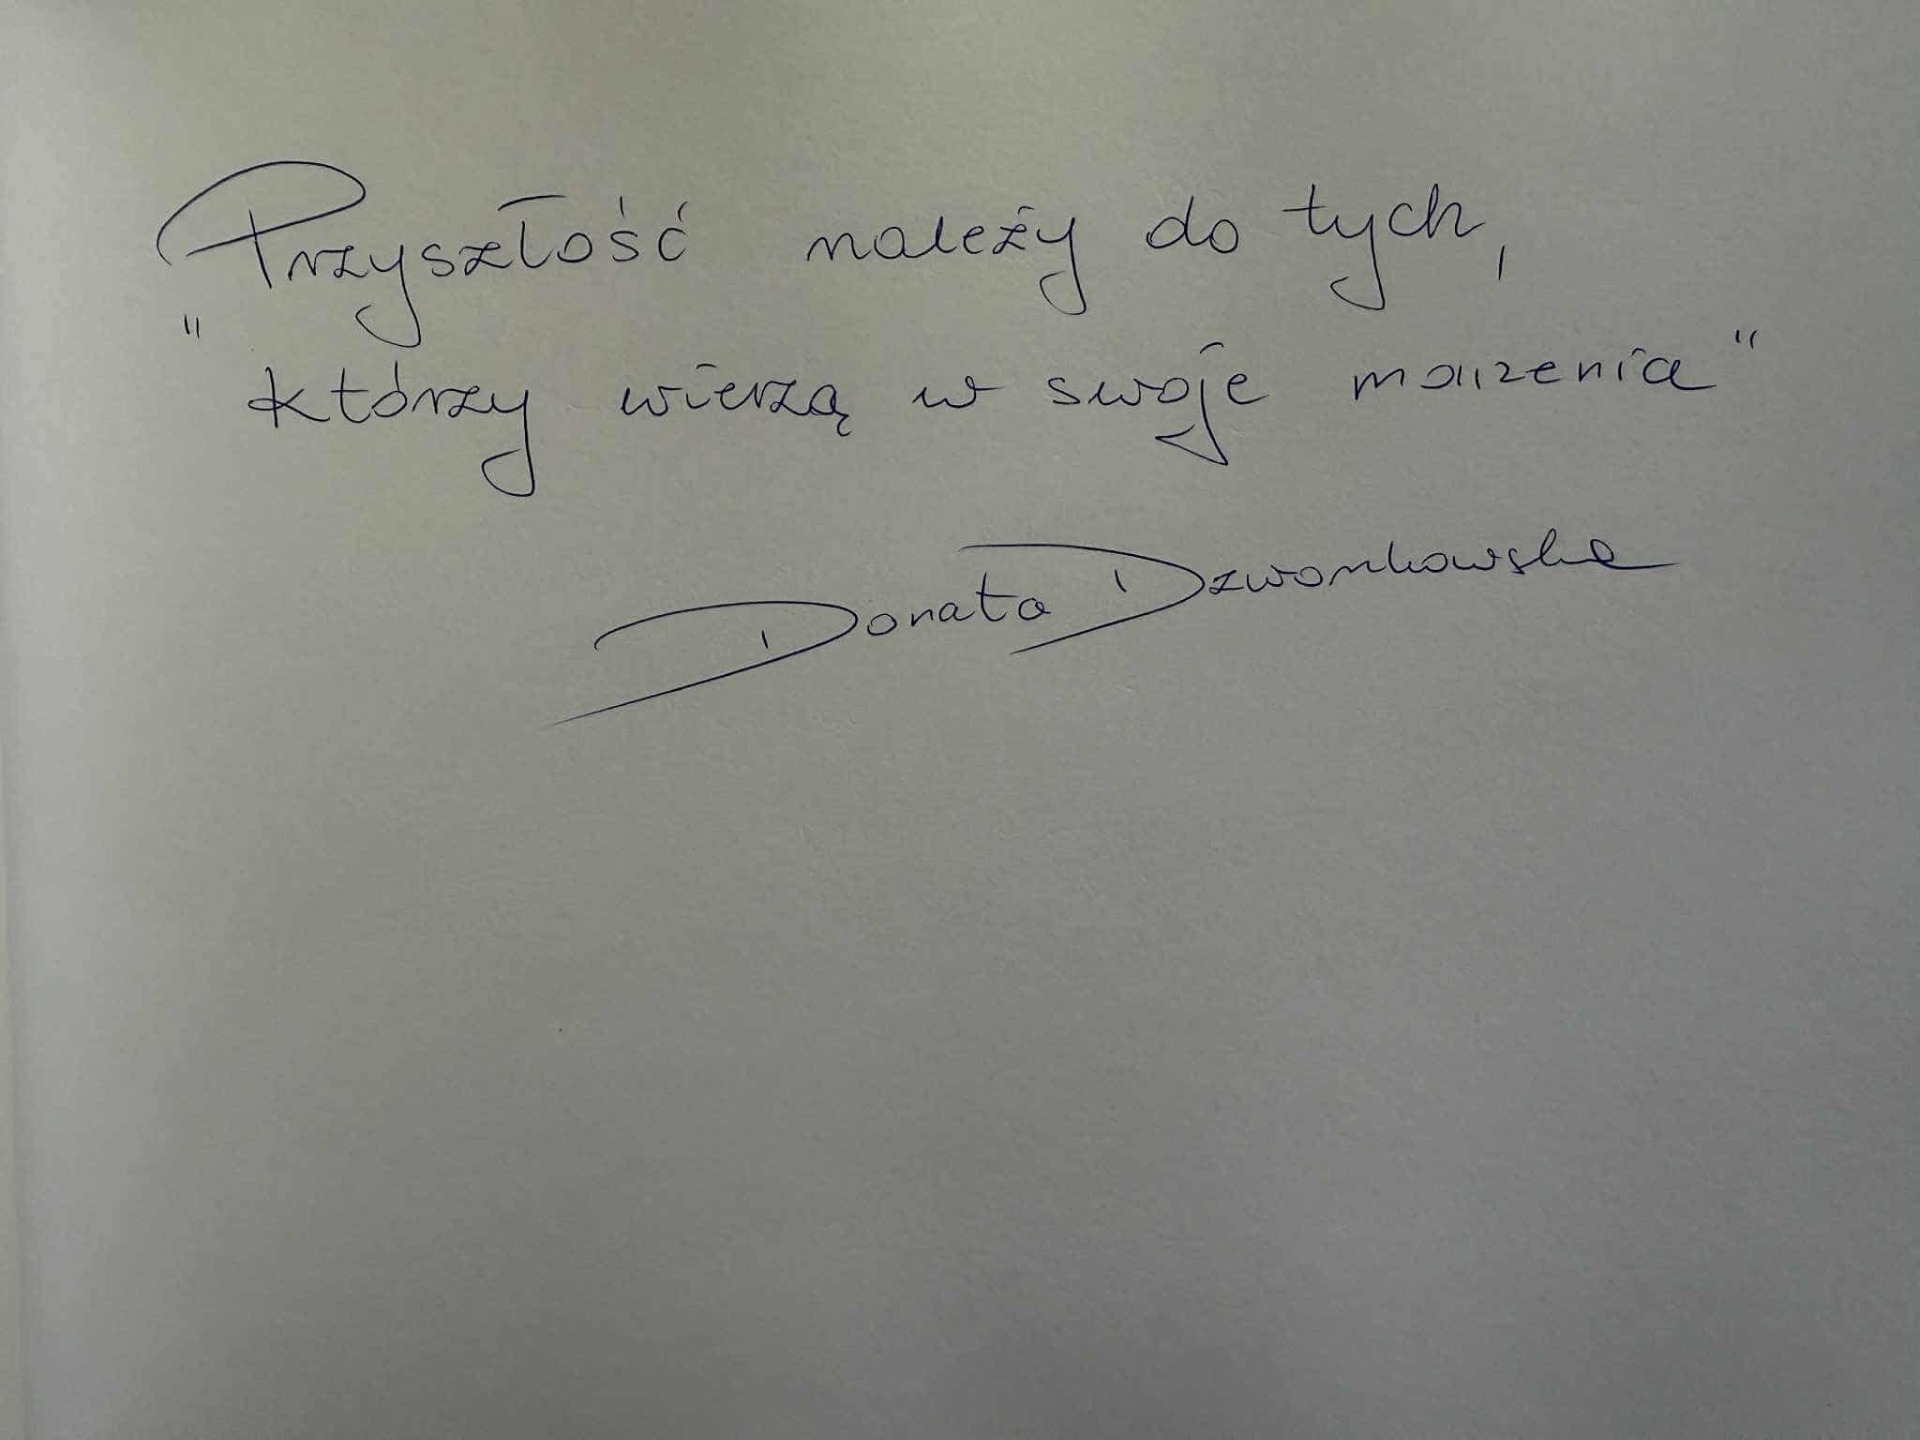 „Przyszłość należy do tych,
którzy wierzą w swoje marzenia"
Donata Dzwonkowska